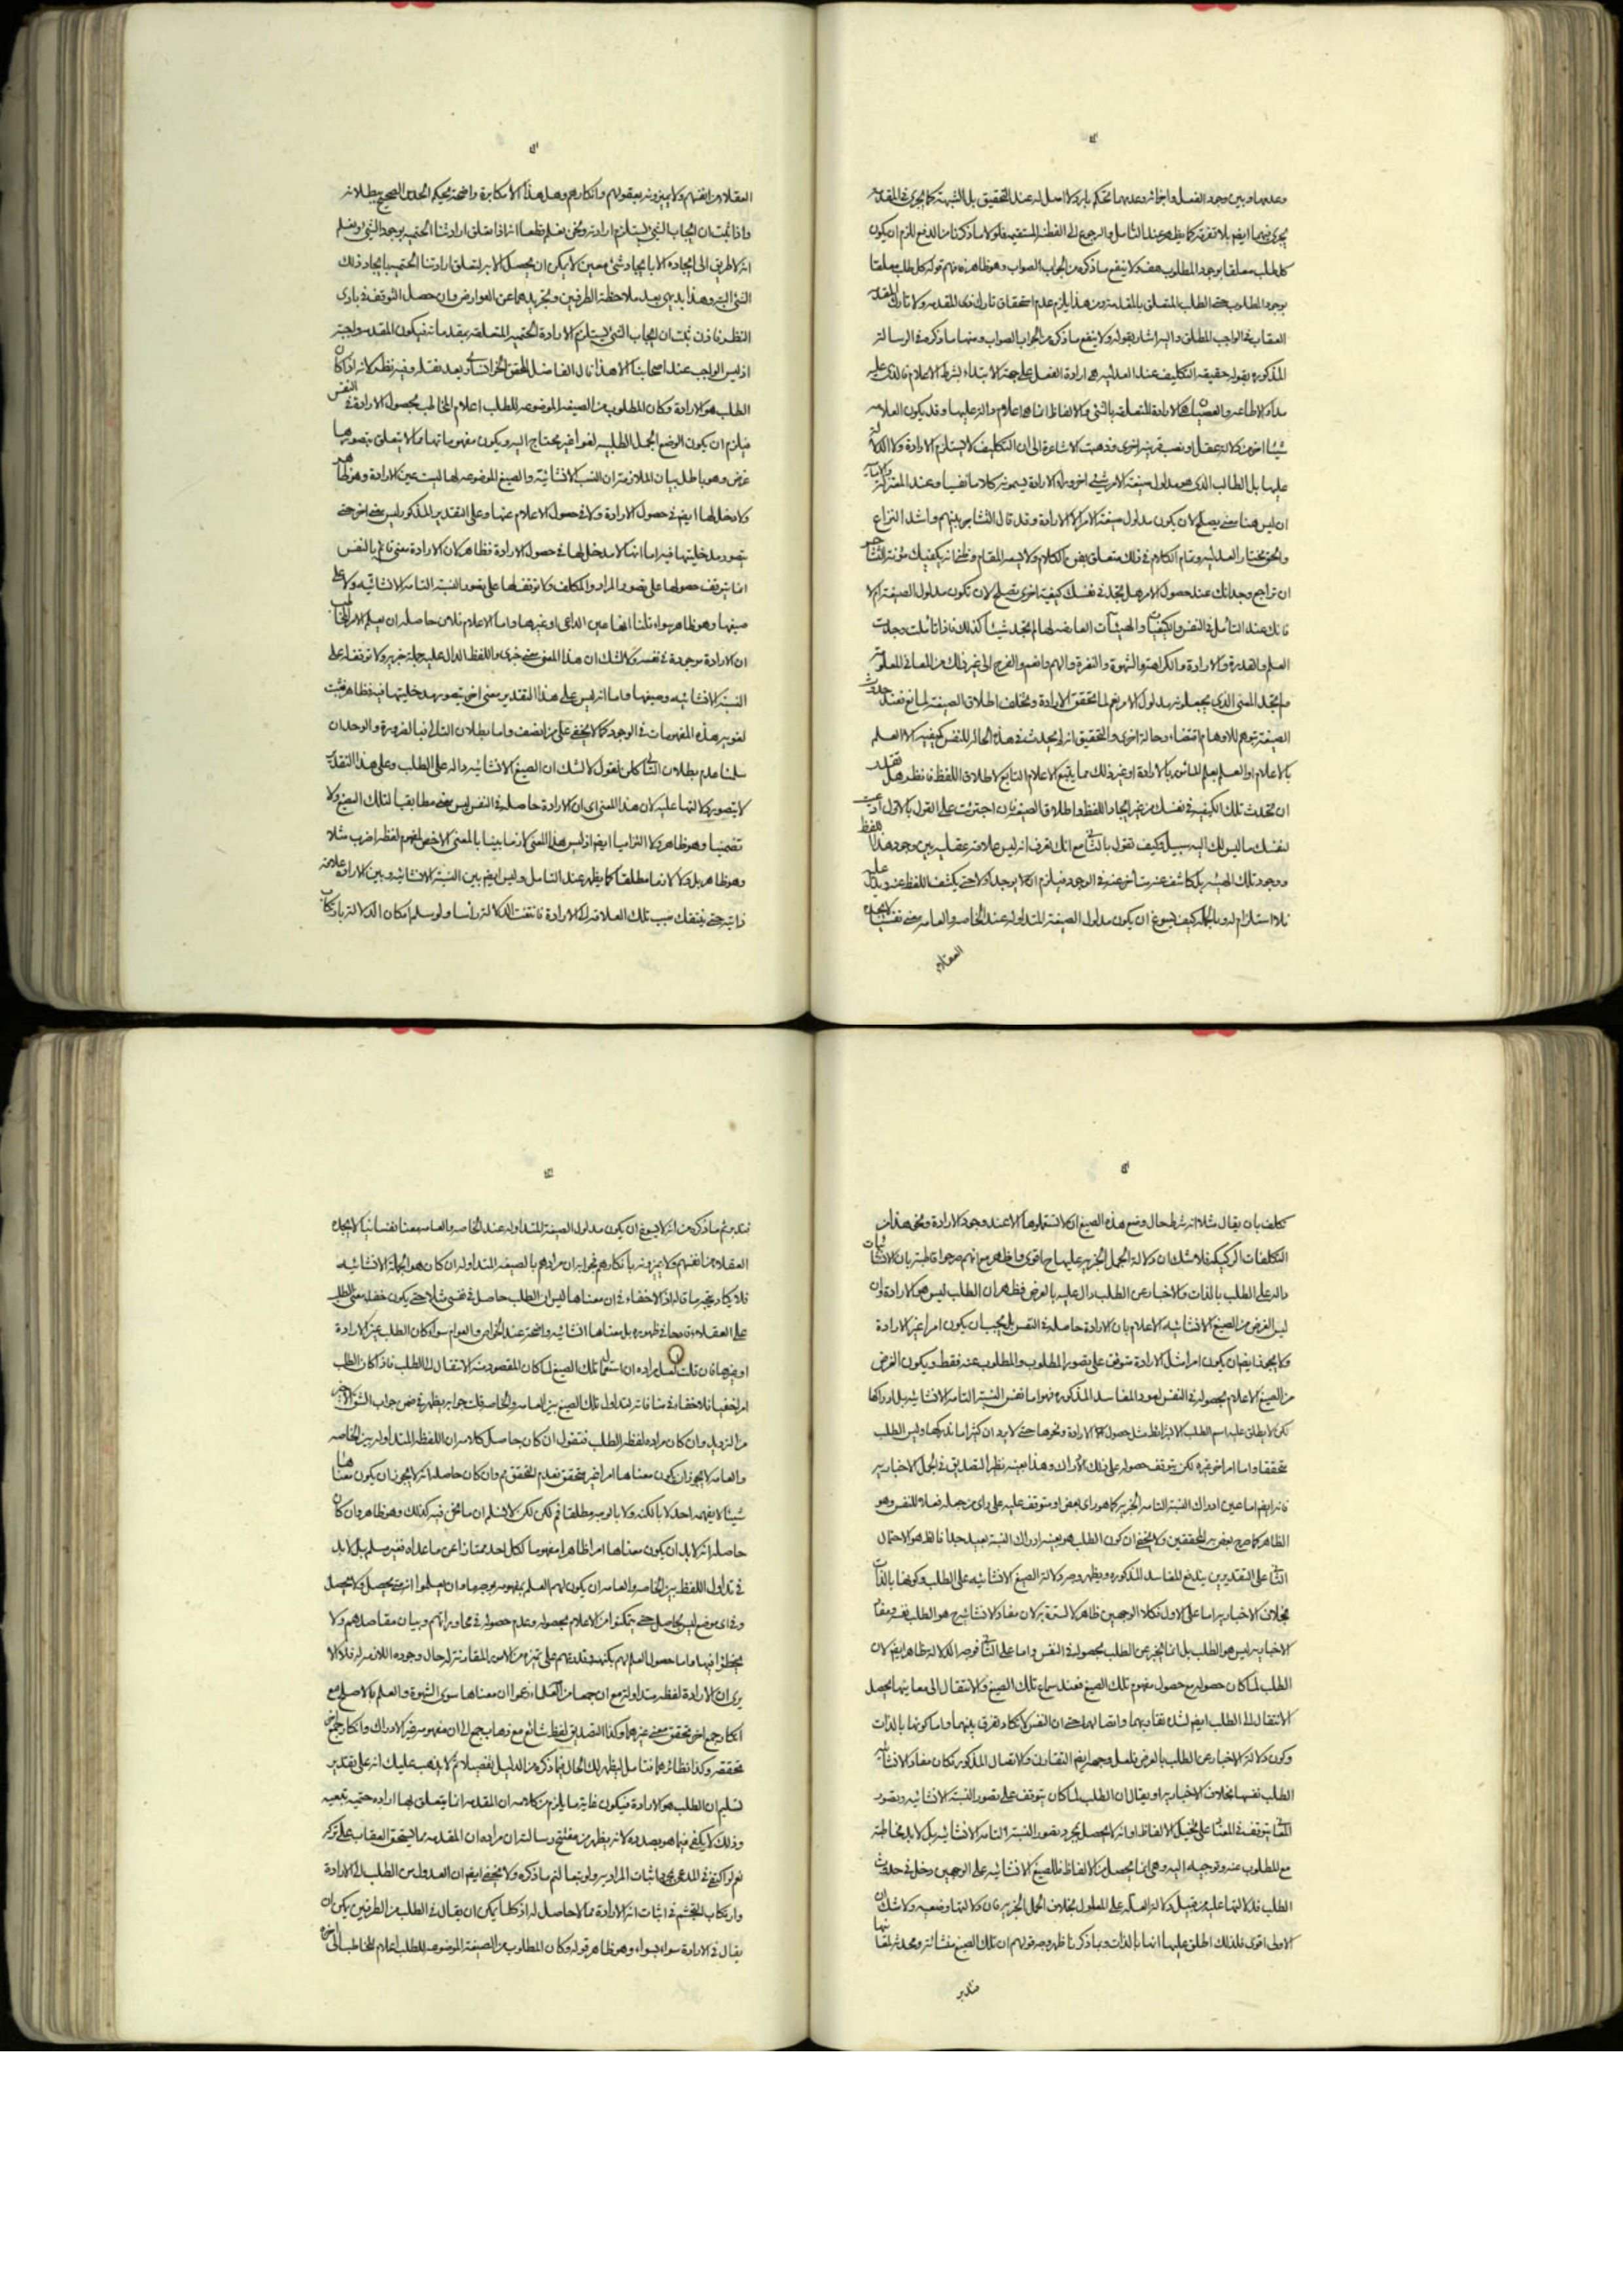 وعدمها وبين وجود الفعل واجزائه وعدمها تحكم بارد لا اصل له عند التحقيق بل الشبهة كما يجرى فى المقدمة
يجرى فيها ايضا بلا تفرقة كما يظهر عند التأمل والرجوع الى الفطنة المستقيمة فلولا ما ذكرنا من الدفع للزم ان يكون
كل طلب معلقا بوجود المطلوب هف ولا ينفع ما ذكره من الجواب الصواب وهو ظاهر
بوجود المطلوب الطلب المتعلق بالمقدمة ومن هذا يلزم عدم استحقاق تارك ذى المقدمة ولا تارك المقدمة
العقاب فى الواجب المطلق واليه اشار بقوله ولا ينفع ما ذكره من الجواب الصواب ومنها ما ذكره فى الرسالة
المذكورة بقوله حقيقة التكليف عند العدلية هى ارادة الفعل على جهة الابتداء بشرط الاعلام فالذى عليه
مدار الاطاعة والعصيان هو الارادة المتعلقة بالشئ والالفاظ انما هى اعلام والة عليها وقد يكون العلامة
شيئا اخر من دلالة عقل او نصب قرينة اخرى وذهبت الاشاعرة الى ان التكليف لا يستلزم الارادة ولا الدلالة
عليها بل الطلب الذى هو مدلول صيغة الامر شئ اخر وراء الارادة يسمونه كلاما نفسيا وعند المعتزلة
ان ليس هنا معنى يصلح لان يكون مدلول صيغة الامر الا الارادة وقد قال التشاجر بينهم واشتد النزاع
والحق مختار العدلية وتمام الكلام فى ذلك متعلق بفن الكلام ولا يسعه المقام وظنى انه يكفيك مؤنة التشاجر
ان تراجع وجدانك عند حصول الامر هل تجد فى نفسك كيفية اخرى تصلح لان تكون مدلول الصيغة ام لا
فانك عند التأمل فى النفس والكيفيات والهيئات العارضة لها لم تجد شيئا كذلك فاذا تأملت وجدت
العلم والقدرة والارادة والكراهة والشهوة والنفرة والهم والغم والفرح الى غير ذلك من المعانى المعلومة
ولم تجد المعنى الذى يجعلونه مدلول الامر نعم لما تحقق الارادة وتخلف اطلاق الصيغة لمانع فعند حدوث
الصيغة يتوهم للاوهام اقتضاء وحالة اخرى والتحقيق انه لم يحدث فى هذه الحالة للنفس كيفية الا العلم
بالاعلام او العلم بعلم المأمور بالارادة او غير ذلك مما يتبع الاعلام التابع لاطلاق اللفظ فانظر هل تقدر
ان تحدث تلك الكيفية فى نفسك من غير ايجاد اللفظ واطلاق الصيغة فان اجترئت على القول بالاول ادعيت
لنفسك ما ليس لك اليه سبيل وكيف تقول بالثانى مع انك تعرف انه ليس علاقة عقلية بين وجود هذا اللفظ
ووجود تلك الهيئة بل كاشف عنه متأخر عنه فى الوجود فيلزم ان يوجد اولا حتى يكشف اللفظ عنه ويدل عليه
فلا استلزام له وبالجملة كيف يسوغ ان يكون مدلول الصيغة المتداولة عند الخاصة والعامة معنى نفسيا لا يجده
العقلاء
العقلاء من انفسهم ولا يميزونه بعقولهم وافكارهم وهل هذا الا مكابرة واضحة يحكم الحدس الصحيح ببطلانه
واذا ثبت ان ايجاب الشئ يستلزم ارادته ونحن نعلم قطعا انه اذا تعلق ارادتنا الحتمية بوجود الشئ ونعلم
انه لا طريق الى ايجاده الا بايجاد شئ معين لا يمكن ان يحصل الا به لتعلق ارادتنا الحتمية بايجاد ذلك
الشئ البتة وهذا بديهى بعد ملاحظة الطرفين وتجريدهما عن العوارض وان حصل التوقف فى بادى
النظر فاذن ثبت ان ايجاب الشئ يستلزم الارادة الحتمية المتعلقة بمقدماته فيكون المقدمة واجبة
اذ ليس الواجب عند اصحابنا الا هذا قال الفاضل المحقق الخوانسارى بعد نقله وفيه نظر لانه اذا كان
الطلب هو الارادة وكان المطلوب من الصيغة الموضوعة للطلب اعلام المخاطب بحصول الارادة فى النفس
فيلزم ان يكون الوضع الجمل الطلبية لغوا غير محتاج اليه ويكون مفهوماتها مما لا يتعلق بتصورها
غرض وهو باطل بيان الملازمة ان النسب الانشائية والصيغ الموضوعة لها ليست عين الارادة وهو ظاهر
ولا مدخل لها ايضا فى حصول الارادة ولا فى حصول الاعلام عنها وعلى التقدير المذكور ليس معنى اخر حتى
يتصور مدخليتها فيه اما انها لا مدخل لها فى حصول الارادة فظاهر لان الارادة معنى قائم بالنفس
انما يتوقف حصولها على تصور المراد والمكلف ولا توقف لها على تصور النسبة التامة الانشائية ولا على
صيغها وهو ظاهر سواء قلنا انها عين الداعى او غيرها واما الاعلام فلان حاصله ان يعلم الامر المخاطب
ان الارادة موجودة فى نفسه ولا شك ان هذا المعنى معنى خبرى واللفظ الدال عليه جملة خبرية ولا توقف له على
النسبة الانشائية وصيغها واما انه ليس على هذا التقدير معنى اخر يتصور مدخليتها فيه فظاهر فثبت
لغوية هذه المفهومات فى الوجود كما لا يخفى على من انصف واما بطلان التالى فبالضرورة والوجدان
سلمنا عدم بطلان التالى لكن نقول لا شك ان الصيغ الانشائية دالة على الطلب وعلى هذا التقدير
لا يتصور دلالتها عليه لان هذا المعنى اى ان الارادة حاصلة فى النفس ليس معنى مطابقيا لتلك الصيغ ولا
تضمنيا وهو ظاهر ولا التزاميا ايضا اذ ليس هذا المعنى لازما بينا بالمعنى الاخص لمفهوم لفظ اضرب مثلا
وهو ظاهر بل ولا لازما مطلقا كما يظهر عند التأمل وليس ايضا بين النسبة الانشائية وبين الارادة علاقة
ذاتية حتى ينتقل بسبب تلك العلاقة الى الارادة فانتفت الدلالة رأسا ولو سلم امكان الدلالة بارتكاب
تكلف بان يقال مثلا انه شرط حال وضع هذه الصيغ ان لا تستعملوها الا عند وجود الارادة ونحو هذا من
التكلفات الركيكة فلا شك ان دلالة الجمل الخبرية عليها ح اقوى واظهر مع انهم صرحوا قاطبة بان الانشائيات
دالة على الطلب بالذات والاخبار عن الطلب دال عليه بالعرض فظهر ان الطلب ليس هو الارادة وان
ليس الغرض من الصيغ الانشائية الاعلام بان الارادة حاصلة فى النفس بل يجب ان يكون امرا غير الارادة
ولا يجوز ايضا ان يكون امرا مثل الارادة متوقف على تصور المطلوب والمطلوب عنه فقط ويكون الغرض
من الصيغ الاعلام بحصوله فى النفس لعود المفاسد المذكورة فهو اما نفس النسبة التامة الانشائية بل ادراكها
لكن لا يطلق عليه اسم الطلب الا بشرائط مثل حصول الارادة ونحوها حتى لا يرد ان كثيرا ما ندركها وليس الطلب
متحققا واما امر اخر غيره لكن يتوقف حصوله على ذلك الادراك وهذا بعينه نظير التصديق فى الجمل الاخبارية
فانه ايضا اما عين ادراك النسبة التامة الخبرية كما هو راى بعض او متوقف عليه على راى من جعله فعلا للنفس وهو
الظاهر كما صرح به بعض المحققين ولا يخفى ان كون الطلب هو بعينه ادراك النسبة بعيد جدا فالظ هو الاحتمال
الثانى وعلى التقديرين يندفع المفاسد المذكورة ويظهر وجه دلالة الصيغ الانشائية على الطلب وكونها بالذات
بخلاف الاخبارية اما على الاول فكلا الوجهين ظاهر لا سترة به لان مفاد الانشائية ح هو الطلب نفسه ومفاد
الاخبارية ليس هو الطلب بل انما يخبر عن الطلب بحصوله فى النفس واما على الثانى فوجه الدلالة ظاهر ايضا لان
الطلب لما كان حصوله مع حصول مفهوم تلك الصيغ فعند سماع تلك الصيغ والانتقال الى معانيها يحصل
الانتقال الى الطلب ايضا لشدة تقاربهما واتصالهما حتى ان النفس لا تكاد تفرق بينهما واما كونها بالذات
وكون دلالة الاخبار عن الطلب بالعرض فلعل وجهه ايضا التقارن والاتصال المذكور فكان مفاد الانشائية
الطلب نفسها بخلاف الاخبارية او يقال ان الطلب لما كان يتوقف على تصور النسبة الانشائية وتصور
المعانى يتوقف فى العادة على تخيل الالفاظ او انه لا يحصل بمجرد تصور النسبة التامة الانشائية بل لا بد مخاطبة
مع المطلوب عنه وتوجيه اليه وهى انما يحصل من الالفاظ فللصيغ الانشائية على الوجهين دخل فى حدوث
الطلب فدلالتها عليه من قبيل دلالة العلة على المعلول بخلاف الجمل الخبرية فان دلالتها وضعية ولا شك ان
الاولى اقوى فلذلك اطلق عليها انها بالذات وبما ذكرنا ظهر وجه قولهم ان تلك الصيغ منشأة ومحدثة لمعانيها
فتدبر
فتدبر ثم ما ذكره من انه لا يسوغ ان يكون مدلول الصيغة المتداولة عند الخاصة والعامة معنا نفسانيا لا يجده
العقلاء من انفسهم ولا يميزونه بافكارهم فجوابه ان مرادهم بالصيغة المتداولة ان كان هو الجملة الانشائية
فلا يكاد يتجه ما قاله اذ لا خفاء فى ان معناها ليس ان الطلب حاصل فى نفسى مثلا حتى يكون خفاء معنى الطلب
على العقلاء قادحا فى ظهوره بل معناها انشائية واضحة عند الخواص والعوام سواء كان الطلب عين الارادة
او غيرها فان قلت لعل مراده ان استعمال تلك الصيغ لما كان المقصود منه الانتقال الى الطلب فاذا كان الطلب
امرا خفيا فلا خفاء فى منافاته لتداول تلك الصيغ بين العامة والخاصة قلت جوابه يظهر فى ضمن جواب الشق الاخير
من الترديد وان كان مراده لفظ الطلب فنقول ان كان حاصل كلامه ان اللفظ المتداولة بين الخاصة
والعامة لا يجوز ان يكون معناها امرا غير متحقق فعدم التحقق مم وان كان حاصله انه لا يجوز ان يكون معناها
شيئا لا يفهمه احد لا بالكنه ولا بالوجه مطلقا فهو كك لكن لا نسلم ان ما نحن فيه كذلك وهو ظاهر وان كان
حاصله انه لا بد ان يكون معناها امرا ظاهرا مفهوما لكل احد ممتازا عن ما عداه فغير مسلم بل لا بد
فى تداول اللفظ بين الخاصة والعامة ان يكون لهم العلم بمفهومه بوجه ما وان يعلموا انه متى يحصل ولا يحصل
وفى اى موضع ليس بحاصل حتى يتمكنوا من الاعلام بحصوله وعدم حصوله فى محاوراتهم وبيان مقاصدهم ولا
يخطئوا فيها واما حصول العلم لهم بكنهه وقدرتهم على تميزه من الامور المقارنة له حال وجوده اللازمة له فلا الا
يرى ان الارادة لفظة متداولة مع ان جمعا من العلماء ذهبوا ان معناها سوى الشهوة والعلم بالاصلح مع
انكار جمع اخر تحقق معنى غيرهما وكذا التصديق لفظ شائع مع ذهاب جمع الى ان مفهومه غير الادراك وانكار جمع اخر
تحققه وكذا نظائرهما فتأمل ليظهر لك الحال فيما ذكره من الدليل مفصلا ثم لا يذهب عليك انه على تقدير
تسليم ان الطلب هو الارادة فيكون غاية ما يلزم من كلامه ان المقدمة انما يتعلق بها ارادة حتمية تبعية
وذلك لا يكفى فيما هو بصدده لانه يظهر من مفتتح رسالته ان مراده ان المقدمة مما يستحق العقاب على تركه
نعم لو اكتفى فى المدعى بمجرد اثبات المراد به ولو تبعا لتم ما ذكره ولا يخفى ايضا ان العدول من الطلب الى الارادة
وارتكاب التجشم فى اثبات انه الارادة مما لا حاصل له اذ كلما يمكن ان يقال فى الطلب من الطرفين يمكن ان
يقال فى الارادة سواء بسواء وهو ظاهر قوله وكان المطلوب من الصيغة الموضوعة للطلب اعلام المخاطب الى اخره